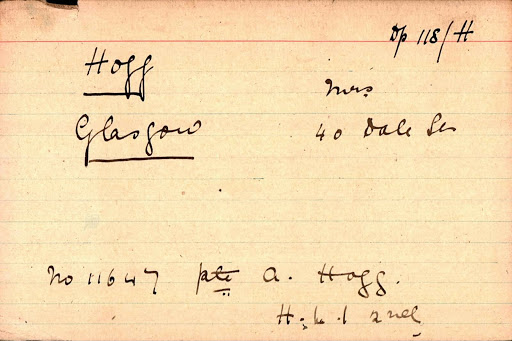 Dp 118/H
Hogg
Mrs
Glasgow
40 Dale St
No 11647 pte A. Hogg.
H.L.I 2nd